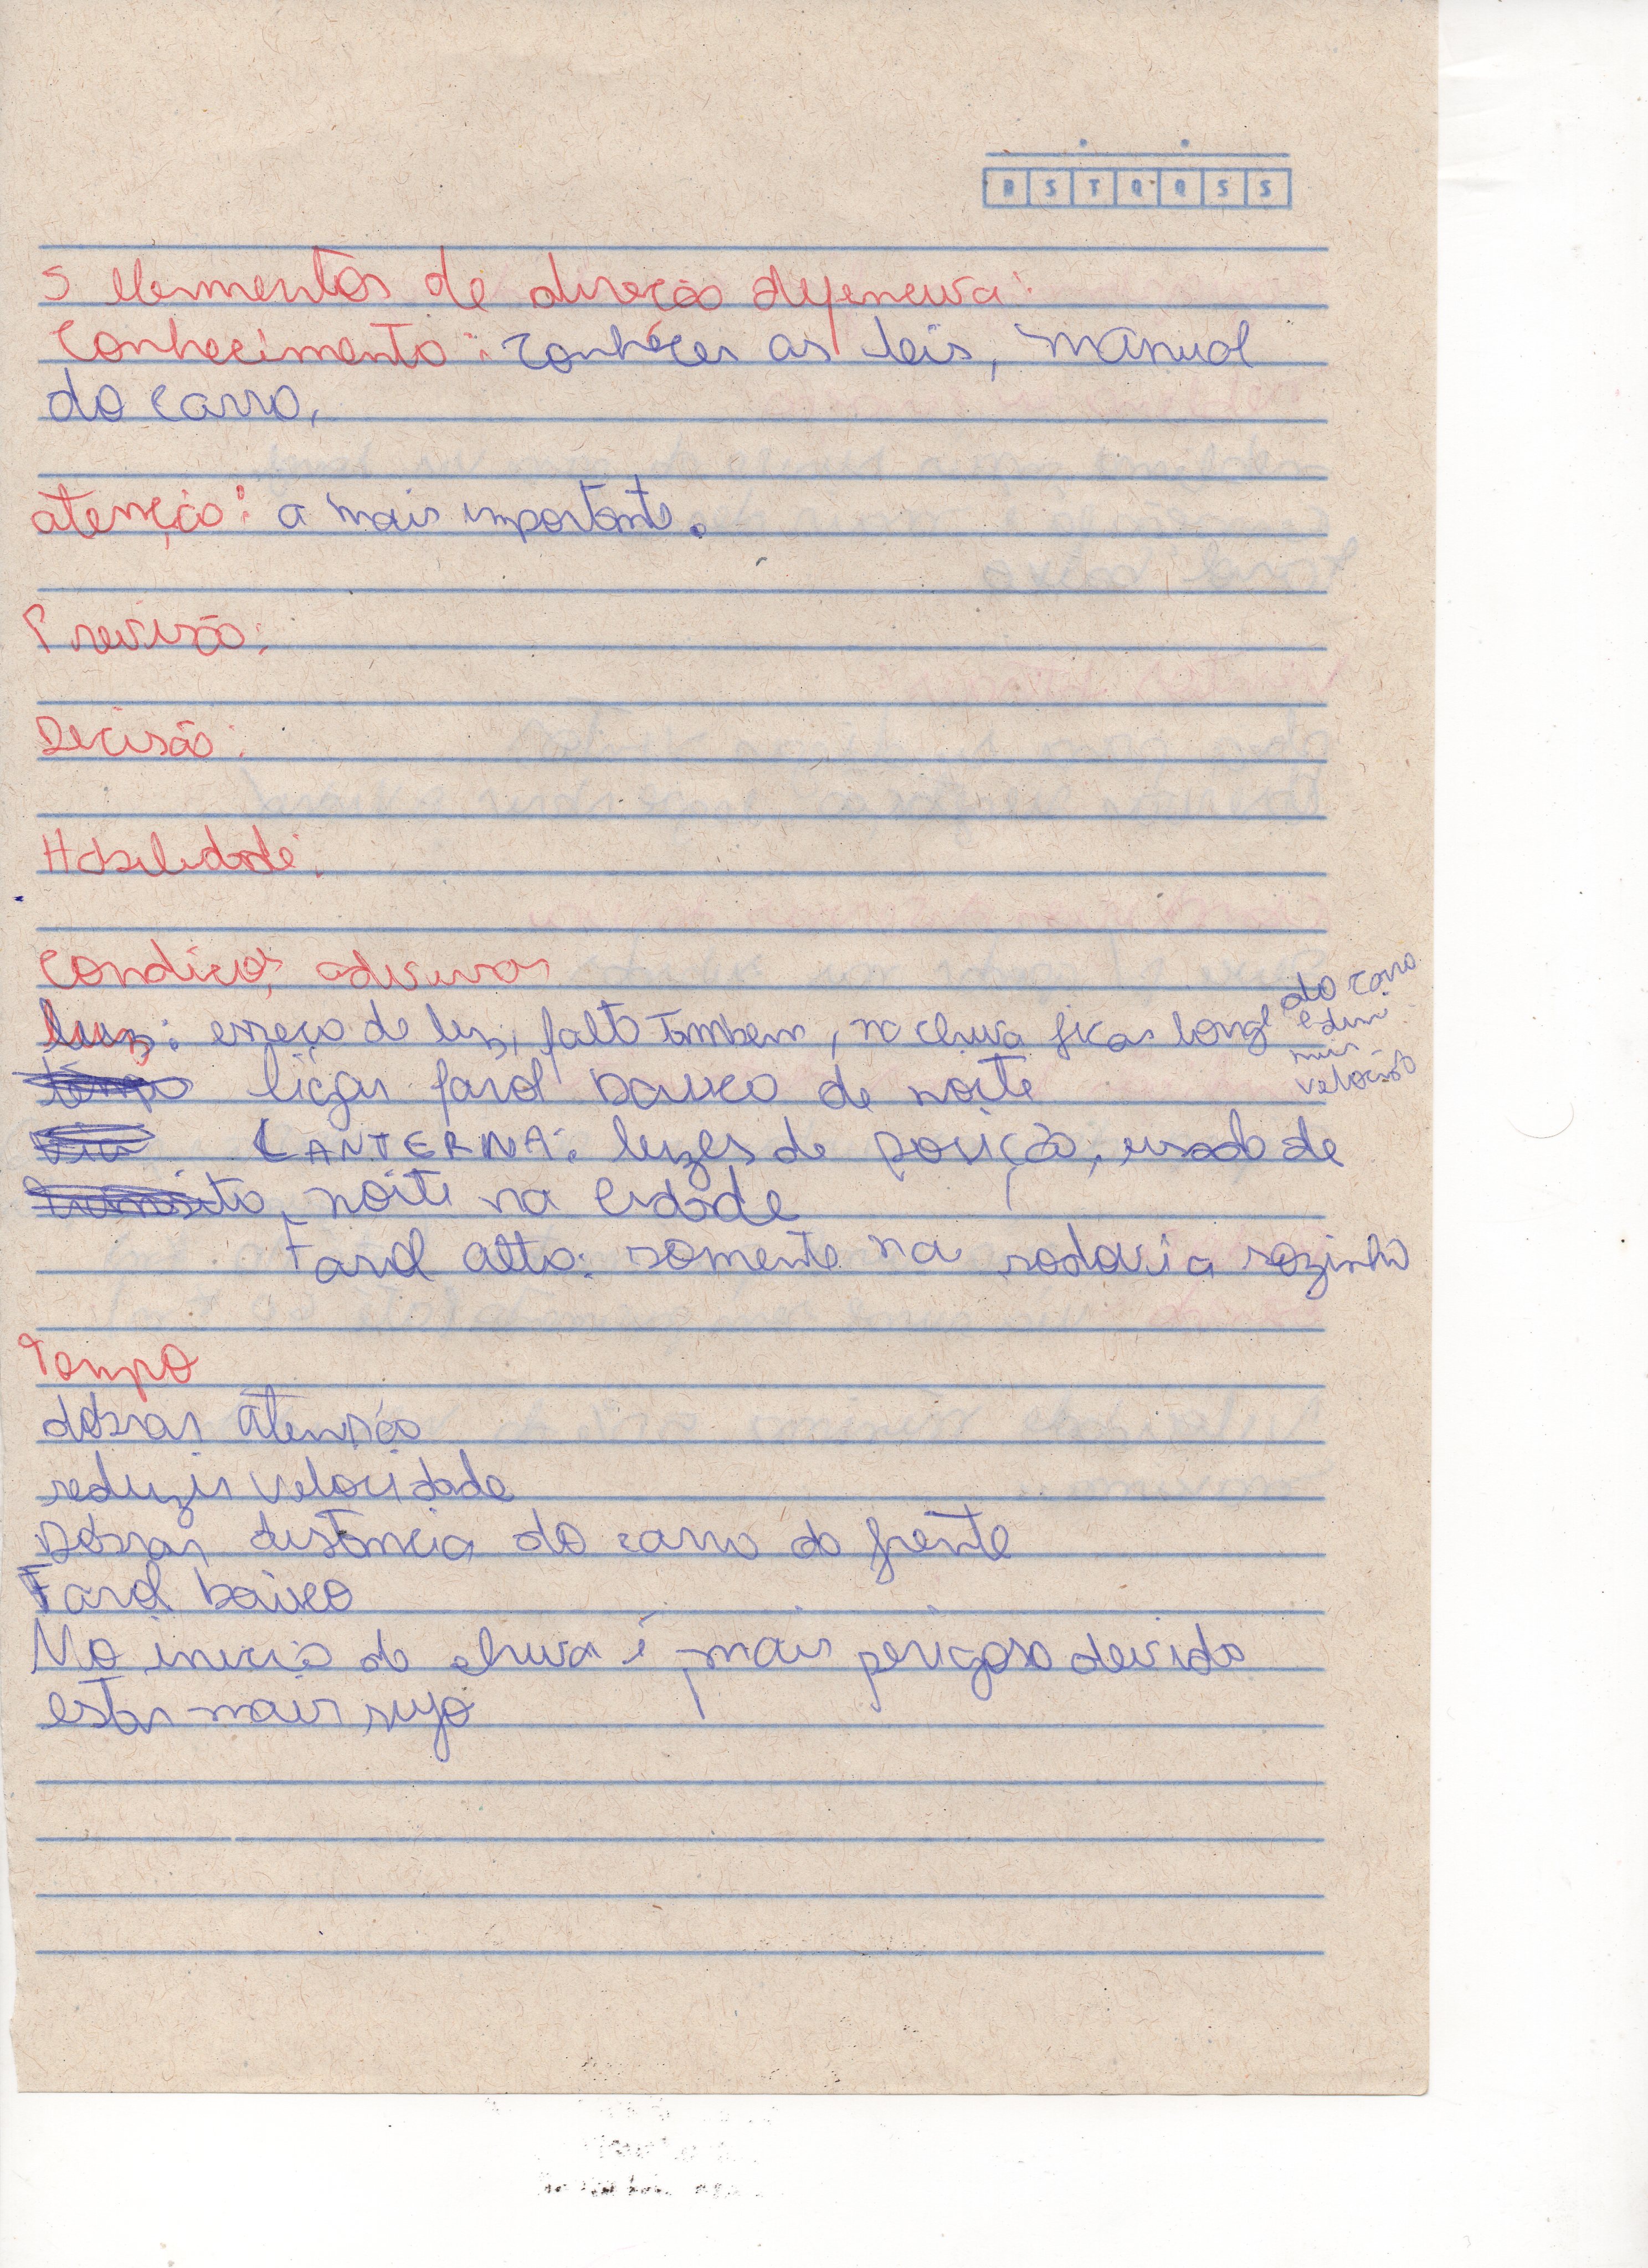 D S T Q Q S S
5 elementos de direção defensiva:
Conhecimento: conhecer as leis, manual
do carro,
atenção: a mais importante.
Previsão:
Decisão:
Habilidade:
Condições adversas
luz: esseço de luz, falta tambem, na chuva ficar longe do carro
e dimi
nuir
velocidade
tempo ligar farol baixo de noite
via LANTERNA: luzes de posição, usado de
transito, noite na cidade
Farol alto: somente na rodovia sozinho
Tempo
dobrar atenção
reduzir velocidade
Dobrar distância do carro da frente
Farol baixo
No inicio da chuva é mais perigoso devido
estar mais sujo